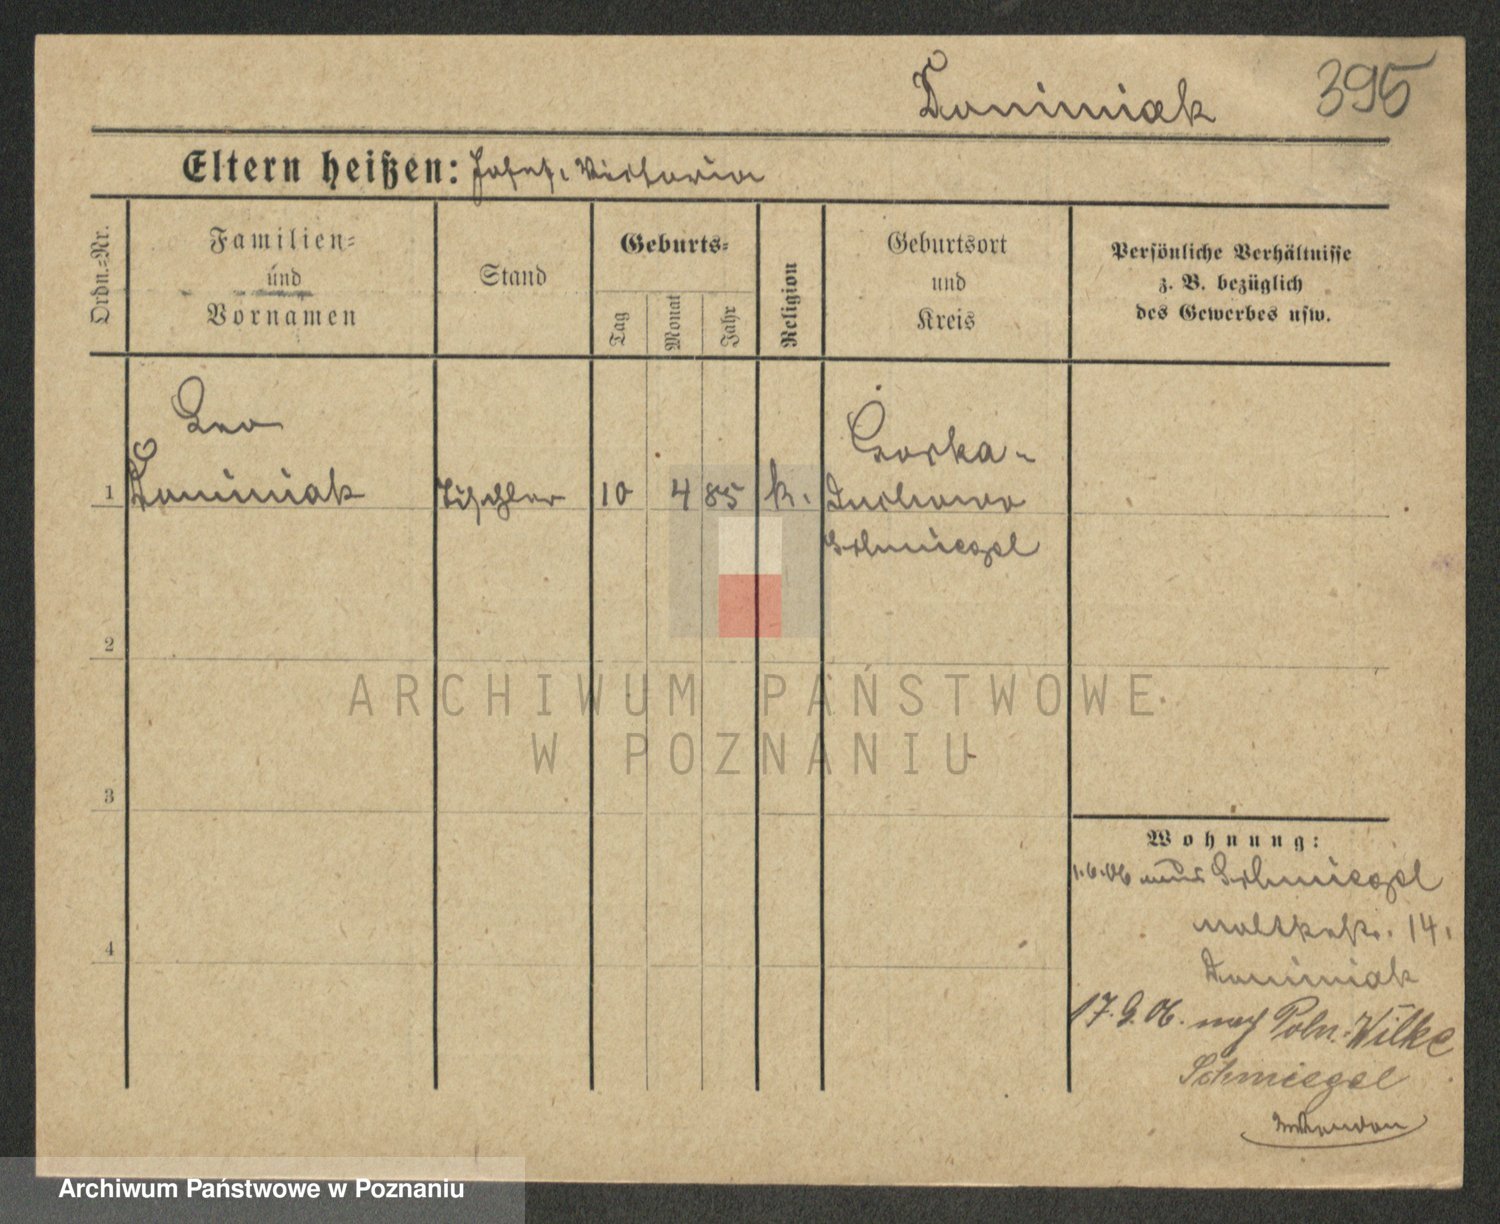 Dominiak 395
Eltern heißen: Josef. Victoria
Ordn.-Nr.
Familien-
und
Vornamen
Stand
Geburts-
Tag
Monat
Jahr
Religion
Geburtsort
und
Kreis
Persönliche Verhältnisse
z. B. bezüglich
des Gewerbes usw.
Leo
1 Dominiak Tischler 10 4 85 k.
Gorka-
Duchowo
Schmiegel
2
ARCHIWUM PAŃSTWOWE
W POZNANIU
3
4
Wohnung:
1.6.06 aus Schmiegel
14.
Dominiak
17.9.06. nach Poln. Wilke
Schmiegel
Archiwum Państwowe w Poznaniu